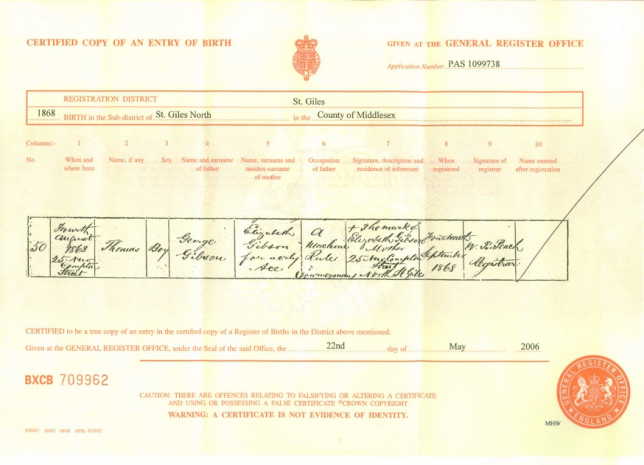 CERTIFIED COPY OF AN ENTRY OF BIRTH
GIVEN AT THE GENERAL REGISTER OFFICE
Application Number PAS 1099738
REGISTRATION DISTRICT St. Giles
1868 BIRTH in the Sub-district of St. Giles North in the County of Middlesex
Columns:- 1 2 3 4 5 6 7 8 9 10
No. When and where born Name, if any Sex Name and surname of father Name, surname and maiden surname of mother Occupation of father Signature, description and residence of informant When registered Signature of registrar Name entered after registration
50
Fourth
August
1868
25 New
Compton
Street
Thomas
Boy
George
Gibson
Elizabeth
Gibson
formerly
A
Rule
X The mark of
Elizabeth Gibson
Mother
25 New Compton
Street
North St Giles
September
1868
Registrar
CERTIFIED to be a true copy of an entry in the certified copy of a Register of Births in the District above mentioned.
Given at the GENERAL REGISTER OFFICE, under the Seal of the said Office, the 22nd day of May 2006
BXCB 709962
CAUTION: THERE ARE OFFENCES RELATING TO FALSIFYING OR ALTERING A CERTIFICATE
AND USING OR POSSESSING A FALSE CERTIFICATE ©CROWN COPYRIGHT
WARNING: A CERTIFICATE IS NOT EVIDENCE OF IDENTITY.
GENERAL REGISTER OFFICE
ENGLAND
MHW